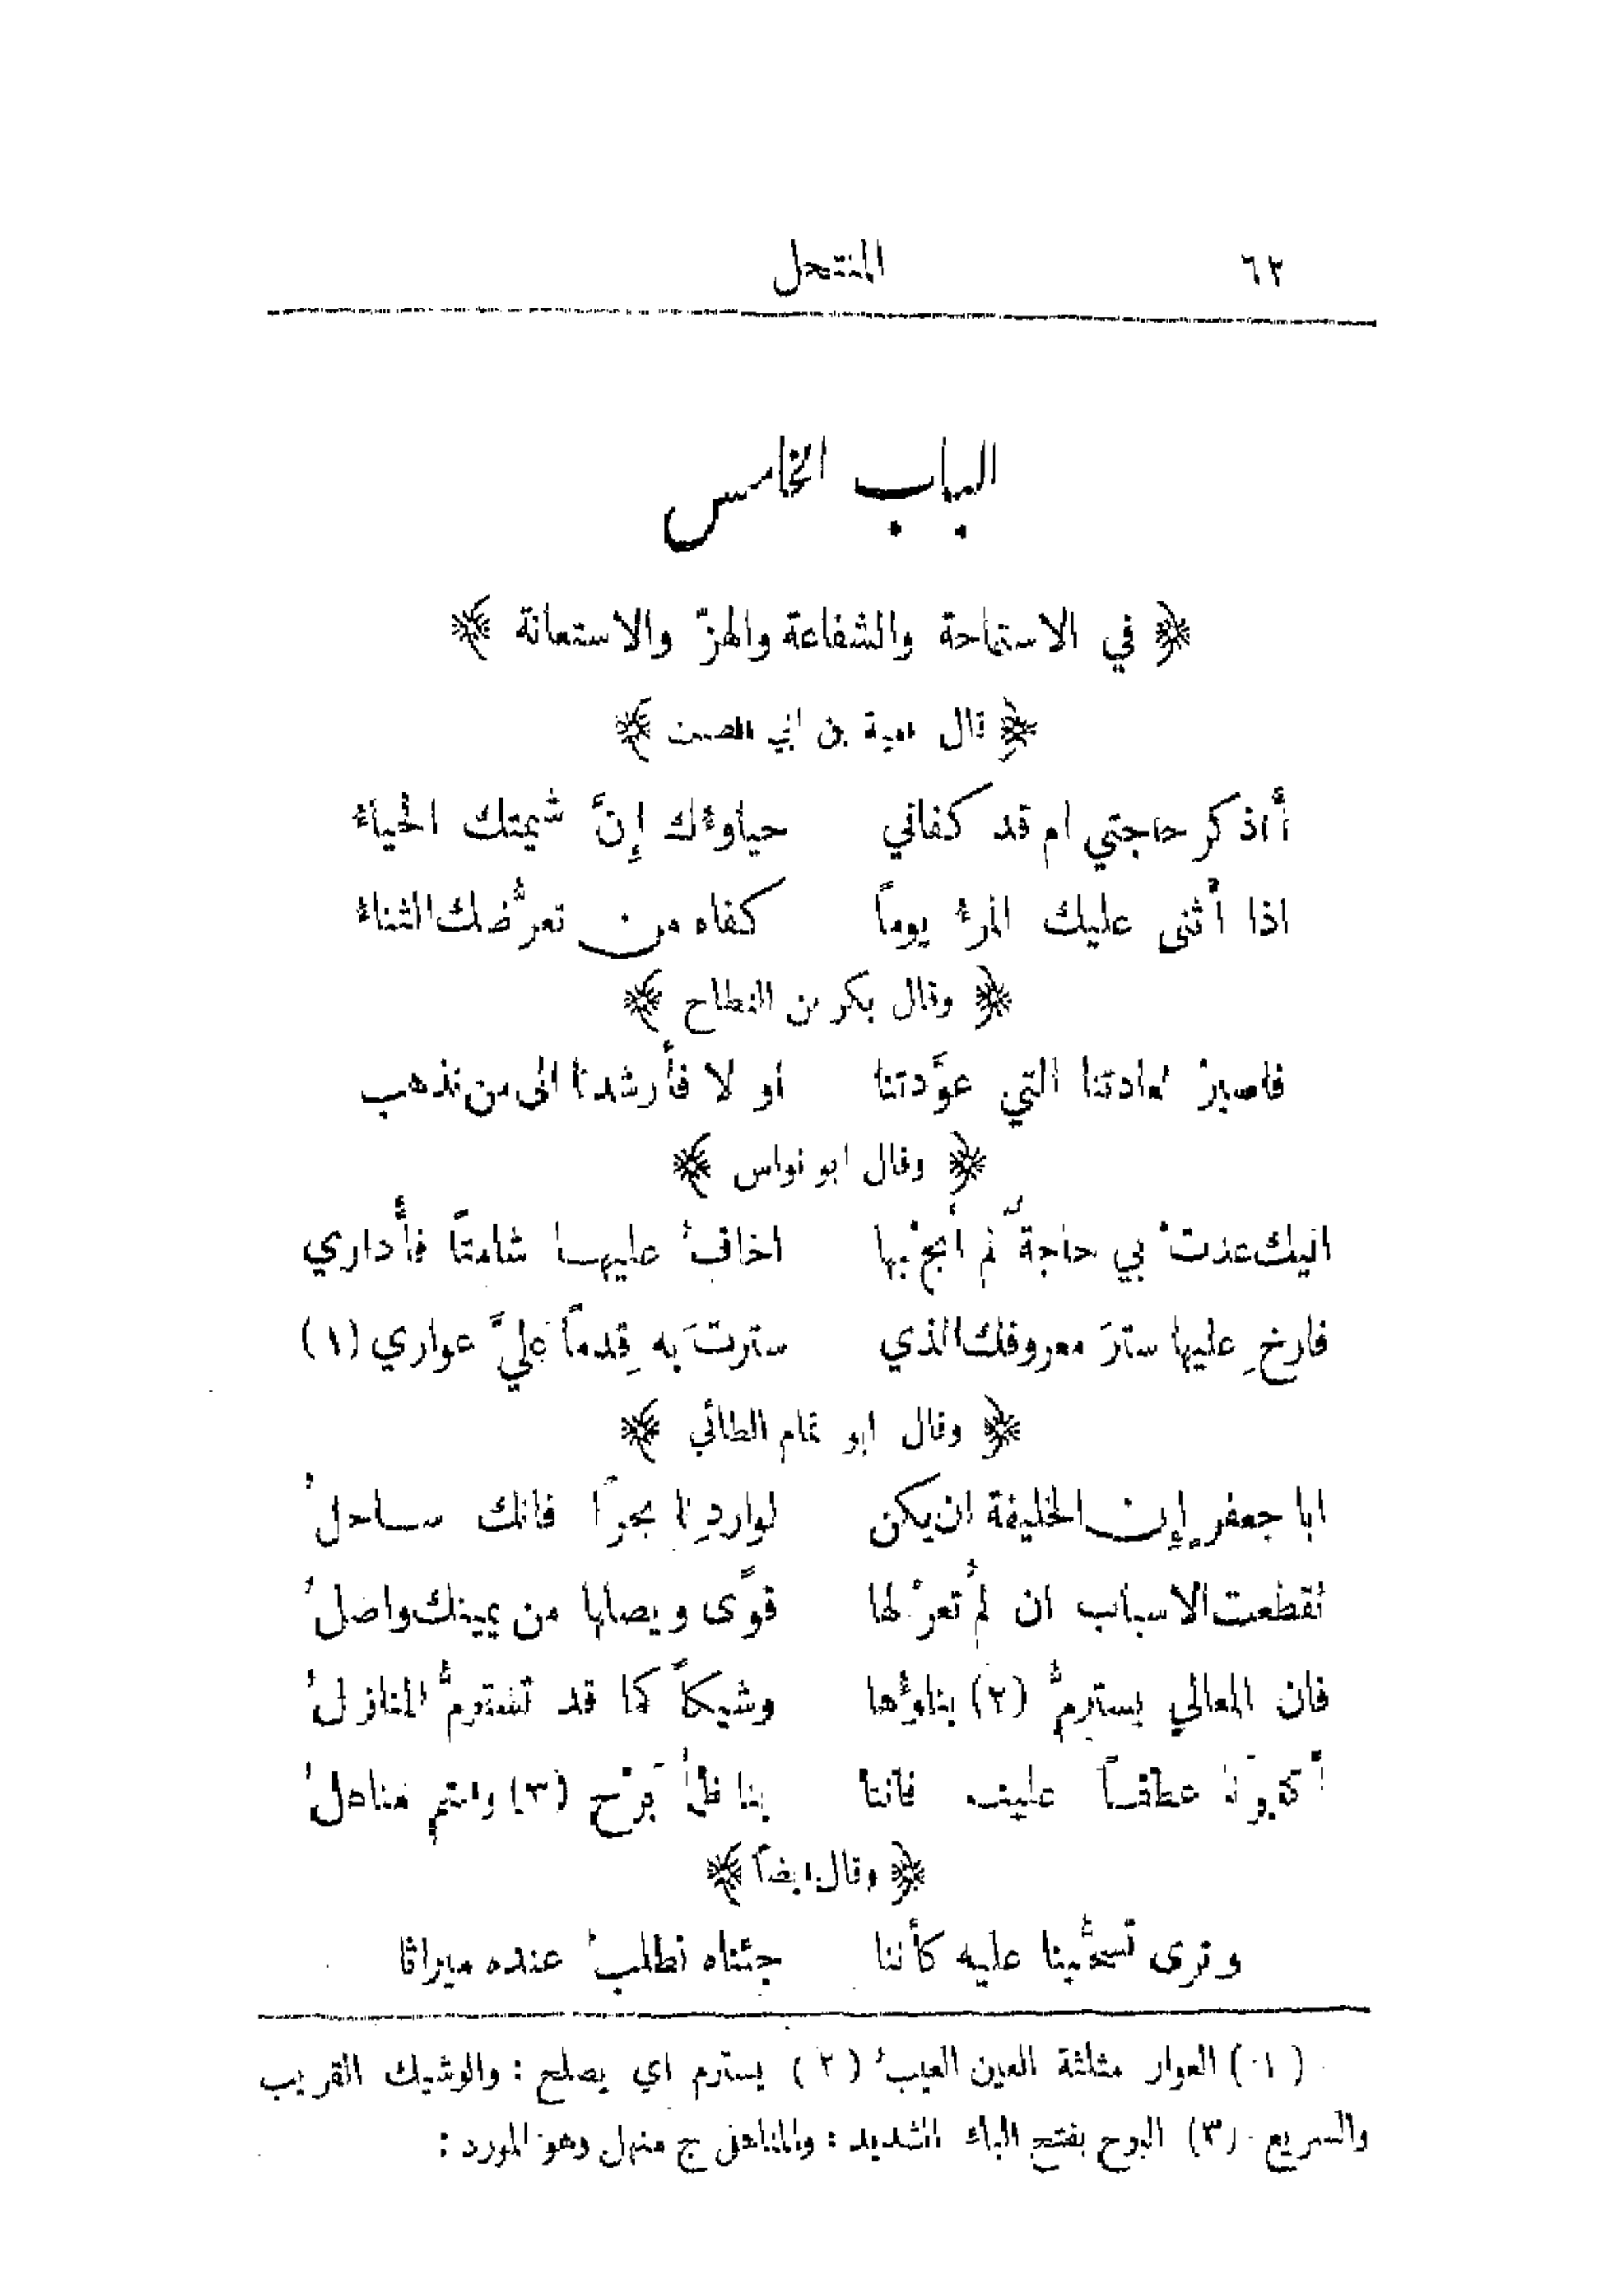 ٦٢ المنتحل
الباب الخامس
﴿ في الاستماحة والشفاعة والهزّ والاستعانة ﴾
﴿ قال امية بن ابي الصلت ﴾
أاذكر حاجتي ام قد كفاني حياوءك إنَّ شيمتك الحياءُ
اذا أثنى عليك المرءُ يوماً كفاه من تعرُّضك الثناءُ
﴿ وقال بكر بن النطاح ﴾
فاصبرْ لعادتنا التي عوَّدتنا او لا فأرشدنا الى من نذهب
﴿ وقال ابو نواس ﴾
اليك غدتْ بي حاجةٌ لم أبحْ بها اخافُ عليهـا شامتاً فأُداري
فارخِ عليها سترَ معروفك الذي سترتَ به قِدماً عَليَّ عواري (١)
﴿ وقال ابو تمام الطائي ﴾
ابا جعفرٍ إن الخليفة ان يكن لواردِنا بحرًا فانك ســاحلُ
تقطعت الاسباب ان لم تُعرْ لها قوًى ويصلها من يمينك واصلُ
فان المعالي يسترمُّ (٢) بناؤُها وشيكاً كما قد تسترمُّ المنازلُ
عطفـاً علينـا فاننا بنا ظمأٌ بَرْح (٣) وانتم مناهلُ
﴿ وقال ايضاً ﴾
وترى تسحُّبنا عليه كأننا جئناه نطلبُ عنده ميراثا
(١) العوار مثلثة العين العيبُ (٢) يسترم اي يصلح : والوشيك القريب
والسريع (٣) البرح بفتح الباء الشديد : والمناهل ج منهل وهو المورد :